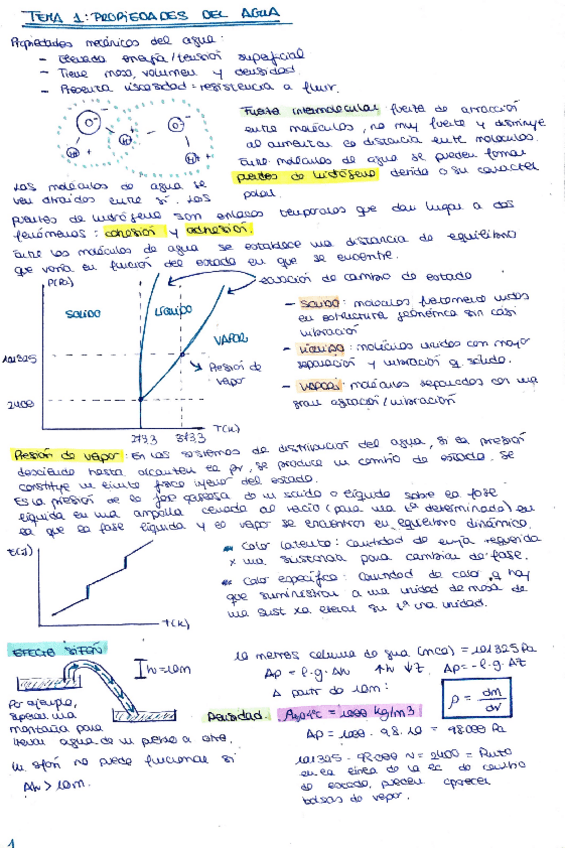 TEMA 1: PROPIEDADES DEL AGUA
Propiedades mecánicas del agua:
- Elevada energía/tensión superficial
- Tiene masa, volumen y densidad.
- Presenta viscosidad = resistencia a fluir.
Fuerza intermolecular: fuerza de atracción
entre moléculas, no muy fuerte y disminuye
al aumentar la distancia entre moléculas.
Entre moléculas de agua se pueden formar
puentes de hidrógeno debido a su carácter
polar.
O⁻
H⁺
H⁺
Las moléculas de agua se
ven atraídas entre sí. Los
puentes de hidrógeno son enlaces temporales que dan lugar a dos
fenómenos: cohesión y adhesión.
Entre las moléculas de agua se establece una distancia de equilibrio
que varía en función del estado en que se encuentre.
P(Pa)
SOLIDO
LÍQUIDO
VAPOR
101325
2400
273,3
373,3
T(K)
Presión de
vapor
ecuación de cambio de estado
- SOLIDO: moléculas fuertemente unidas
en estructura geométrica sin casi
vibración
- LÍQUIDO: moléculas unidas con mayor
separación y vibración q. sólido.
- VAPOR: moléculas separadas con una
gran agitación/vibración
Presión de vapor: En los sistemas de distribución del agua, si la presión
desciende hasta alcanzar la Pv, se produce un cambio de estado. Se
constituye un límite físico inferior del estado.
Es la presión de la fase gaseosa de un sólido o líquido sobre la fase
líquida en una ampolla cerrada al vacío (para una tª determinada) en
la que la fase líquida y el vapor se encuentran en equilibrio dinámico.
E(J)
T(K)
Calor latente: cantidad de energía requerida
x una sustancia para cambiar de fase.
Calor específico: cantidad de calor q hay
que suministrar a una unidad de masa de
una sust xa elevar su tª una unidad.
EFECTO SIFÓN
h = 10m
Por ejemplo,
superar una
montaña para
llevar agua de un punto a otro.
Un sifón no puede funcionar si
Δh > 10m.
10 metros columna de agua (mca) = 101325 Pa
Δp = ρ·g·Δh ↑h ↓z Δp = -ρ·g·Δz
A partir de 10m:
ρ = dm/dV
Densidad. = 1000 kg/m3
Δp = 1000 · 9.8 · 10 = 98000 Pa
101325 - 98000 ≈ 2400 = Punto
en la línea de la ec. de cambio
de estado, pueden aparecer
bolsas de vapor.
1